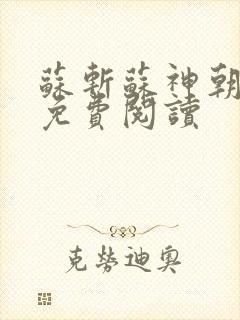 蘇斬蘇神朝
免費閱讀
克勞迪奧